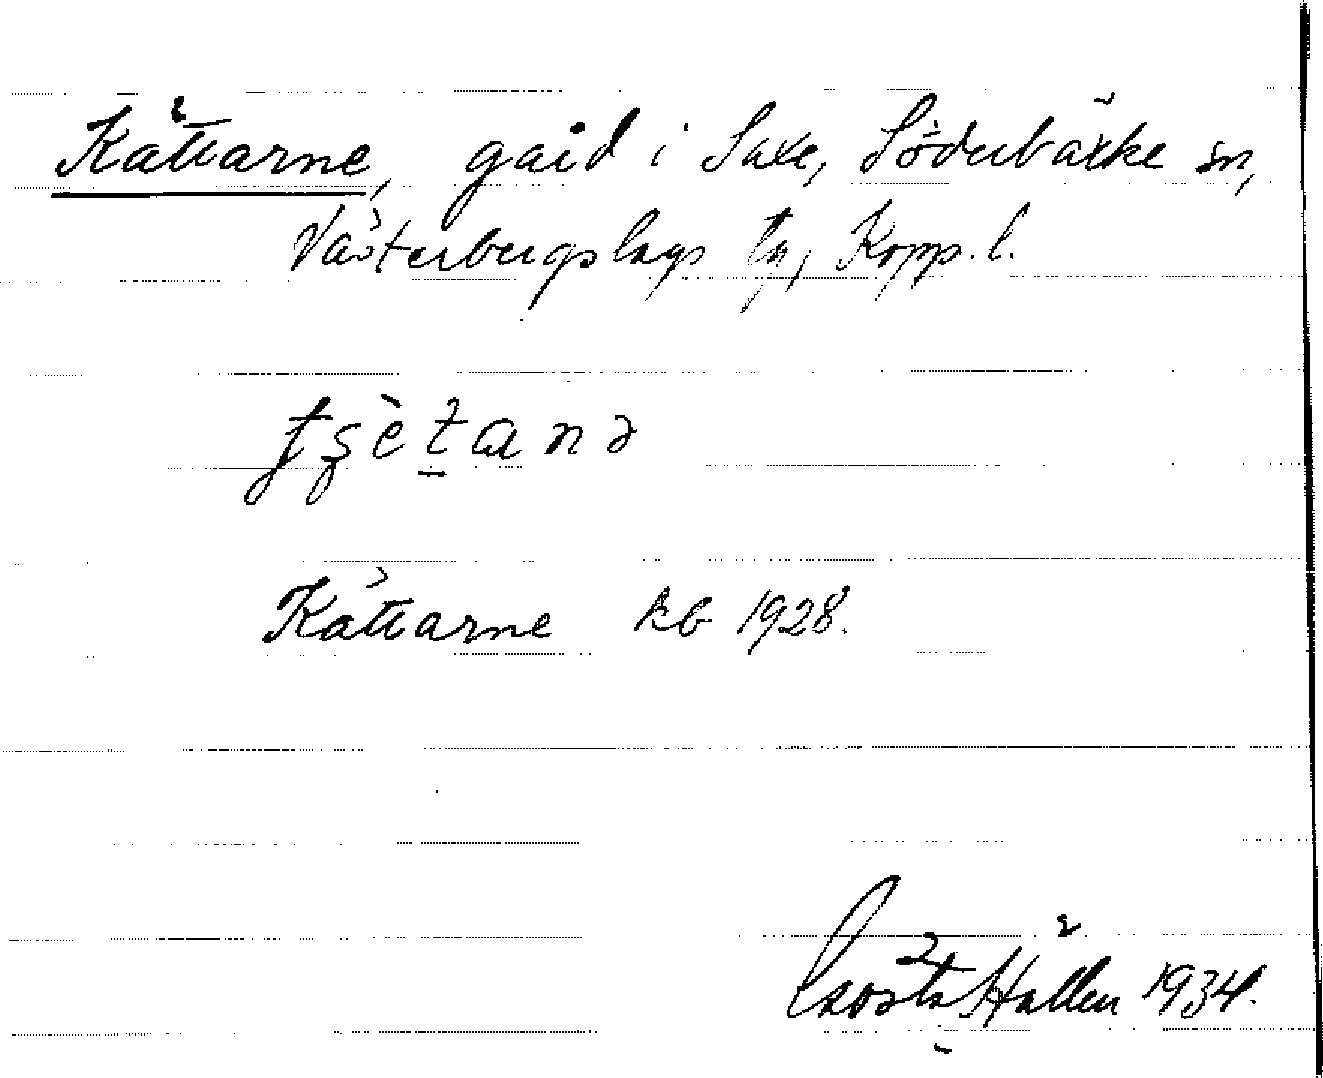 Kättarne, gård i Saxe, Söderbärke sn,
Västerbergslags tg, Kopp. l.
Kättarne kb 1928.
Gösta Hallén 1934.